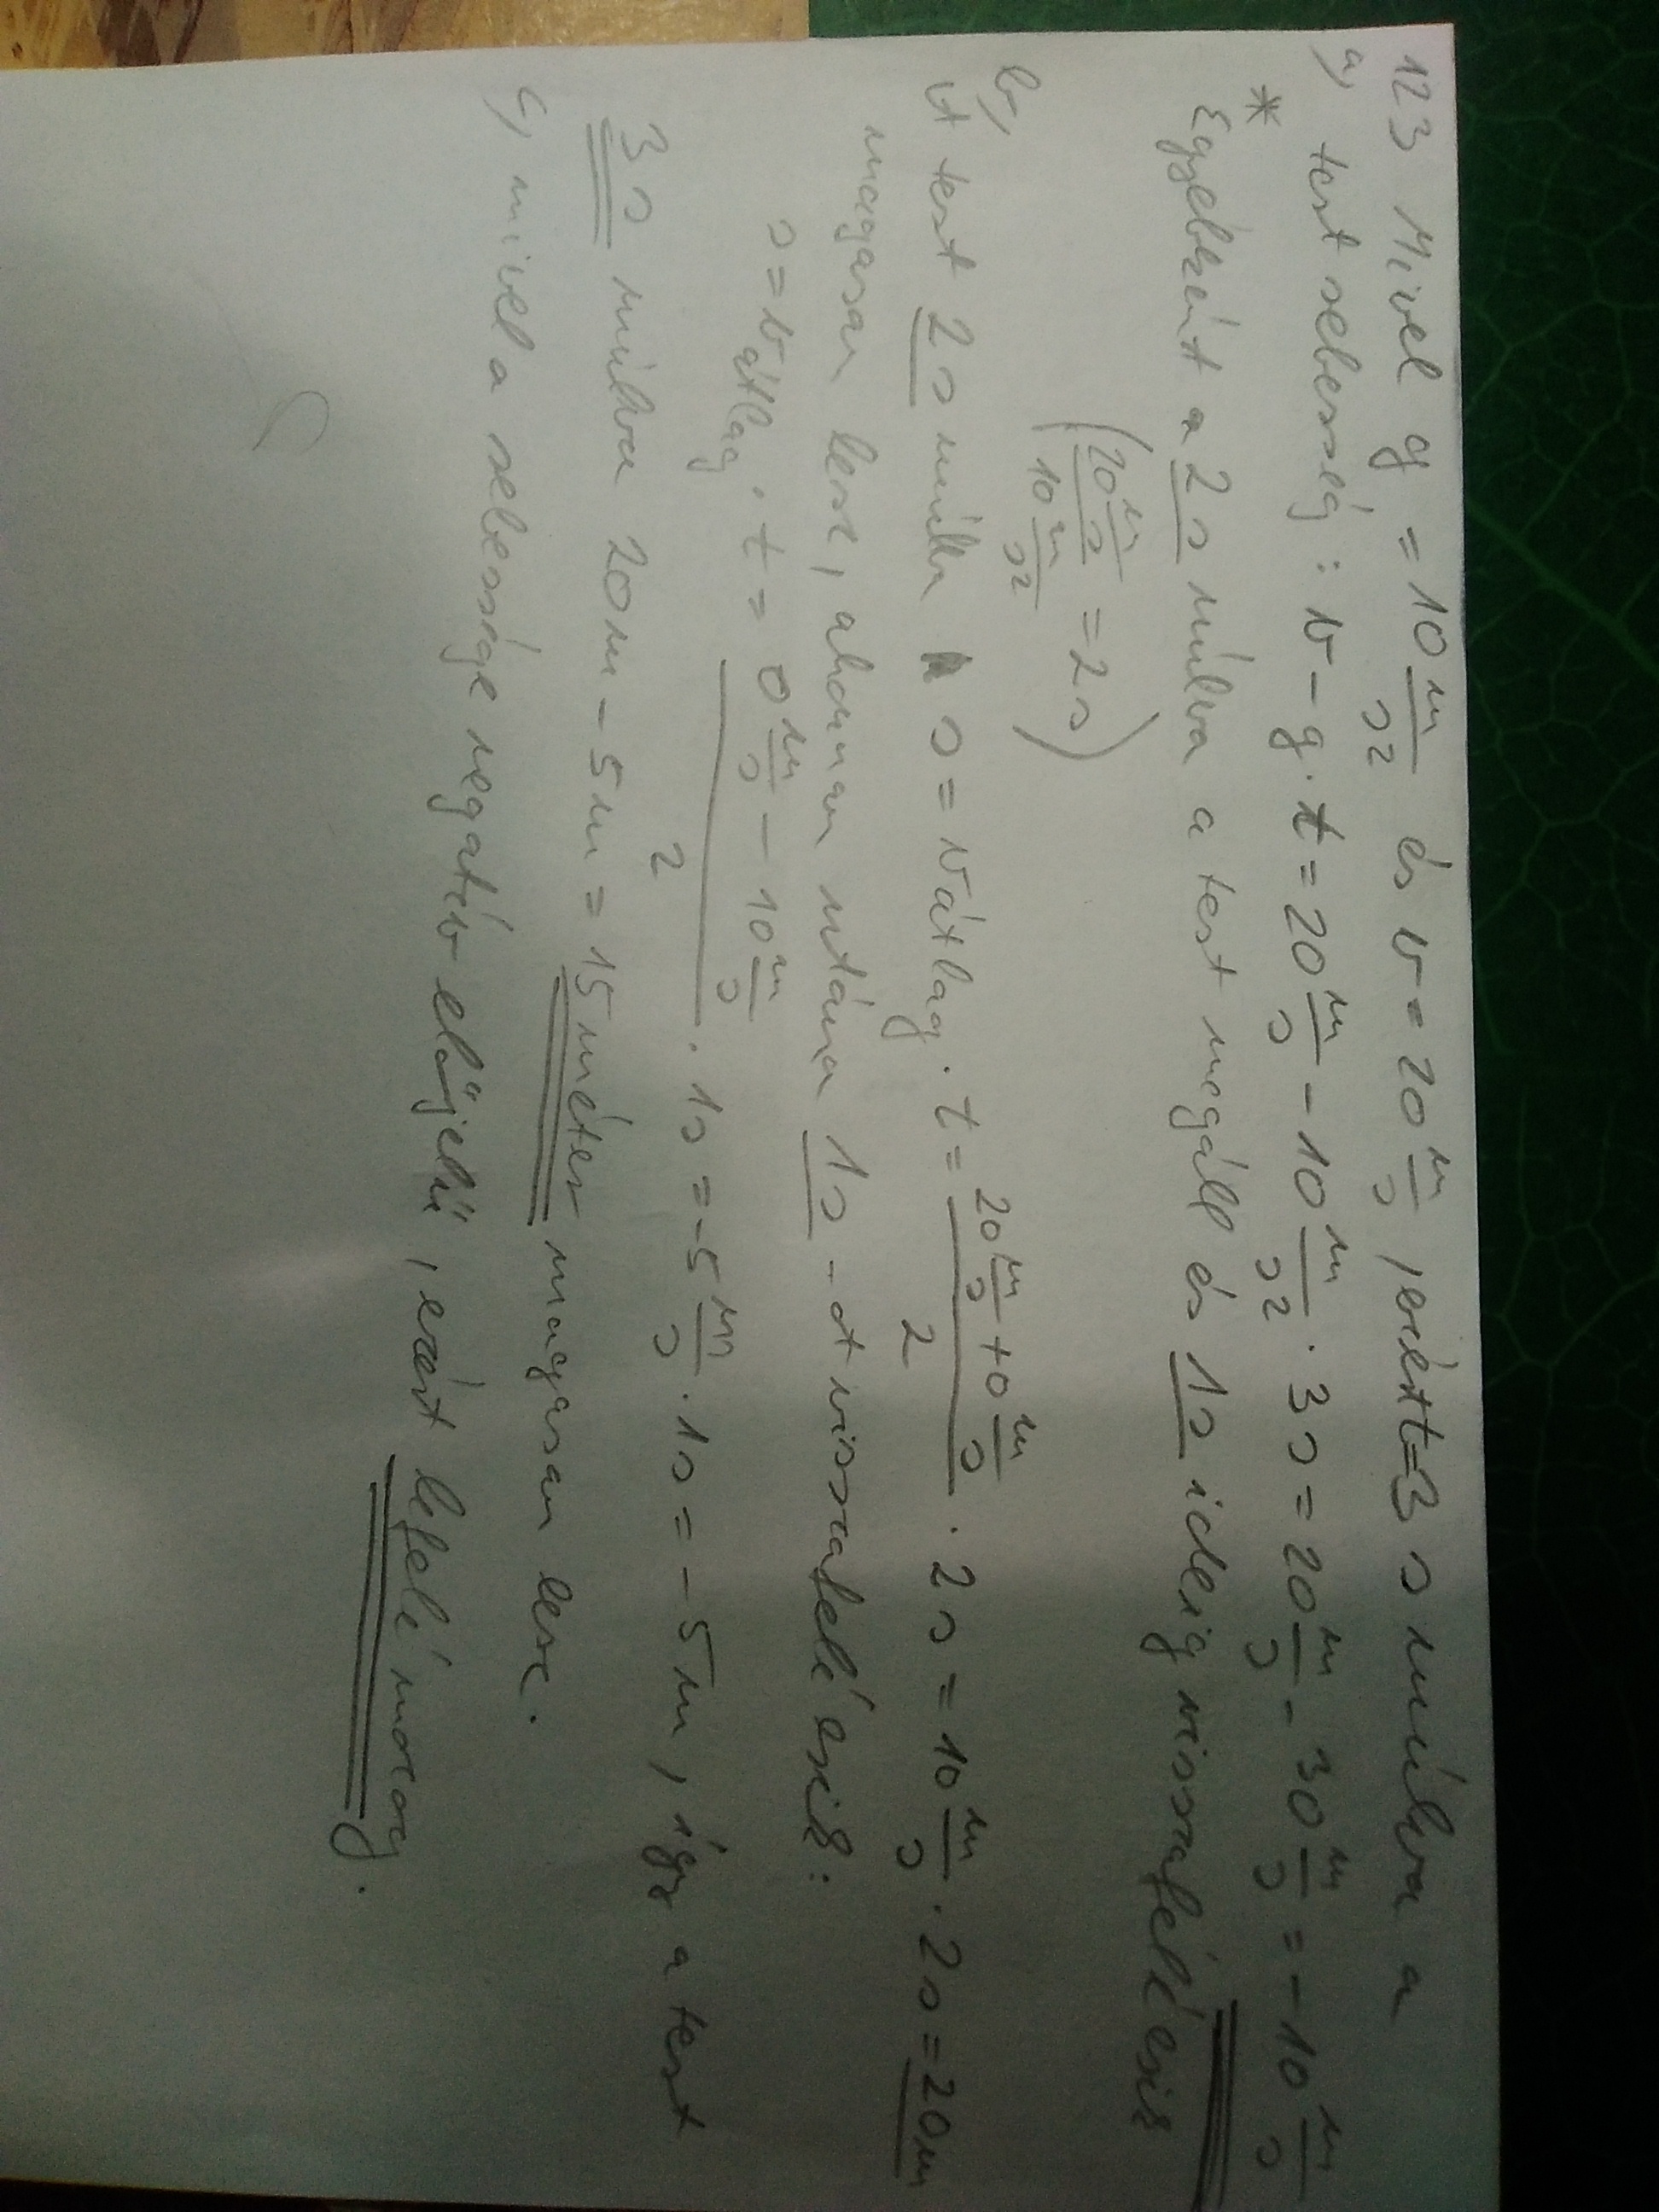 123 Mivel g = 10 m/s2 és v = 20 m/s, ezért t=3 s múlva a
a, test sebesség: v - g·t = 20 m/s - 10 m/s2 · 3 s = 20 m/s - 30 m/s = -10 m/s
* Egyébként a 2 s múlva a test megáll és 1s ideig visszafelé esik
(20 m/s / 10 m/s2 = 2s)
b,
A test 2 s múlva s = vátlag · t = (20 m/s + 0 m/s) / 2 · 2 s = 10 m/s · 2 s = 20m
magasan lesz, ahonnan utána 1s -ot visszafelé esik:
s = vátlag · t = (0 m/s - 10 m/s) / 2 · 1s = -5 m/s · 1s = -5m, így a test
3s múlva 20m - 5m = 15 méter magasan lesz.
c, mivel a sebessége negatív előjelű, ezért lefelé mozog.